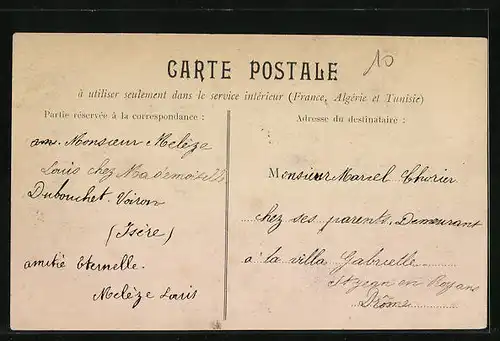 10
CARTE POSTALE
à utiliser seulement dans le service intérieur (France, Algérie et Tunisie)
Partie réservée à la correspondance :
Monsieur Melèze
Louis chez Mademoiselle
Dubouchet. Voiron
(Isère)
amitié Eternelle.
Melèze Louis
Adresse du destinataire :
Monsieur Marcel Thorier
chez ses parents. Demeurant
à la villa Gabrielle
St jean en Royans
Drôme